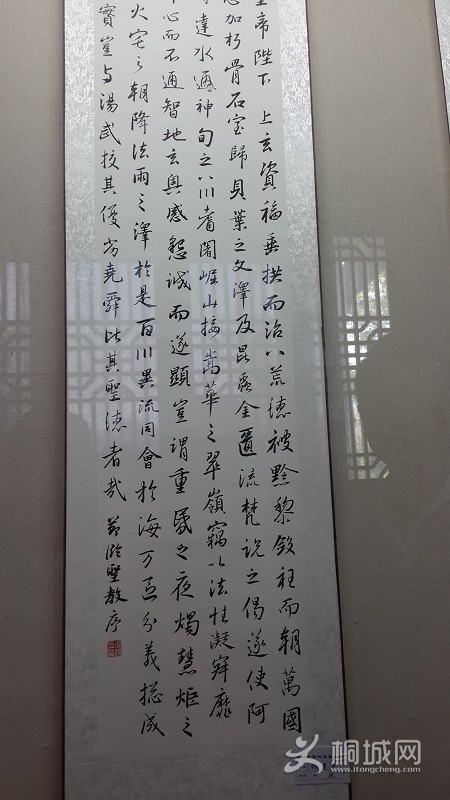 皇帝陛下 上玄資福垂拱而治八荒德被黔黎斂衽而朝萬國
恩加朽骨石室歸貝葉之文澤及昆蟲金匱流梵說之偈遂使阿
達水通神甸之八川耆闍崛山接嵩華之翠嶺竊以法性凝寂靡
心而不通智地玄奧感懇誠而遂顯豈謂重昏之夜燭慧炬之
火宅之朝降法雨之澤於是百川異流同會於海万區分義揔成
實豈与湯武挍其優劣堯舜比其聖德者哉 節臨聖教序
桐城网
www.itongcheng.com